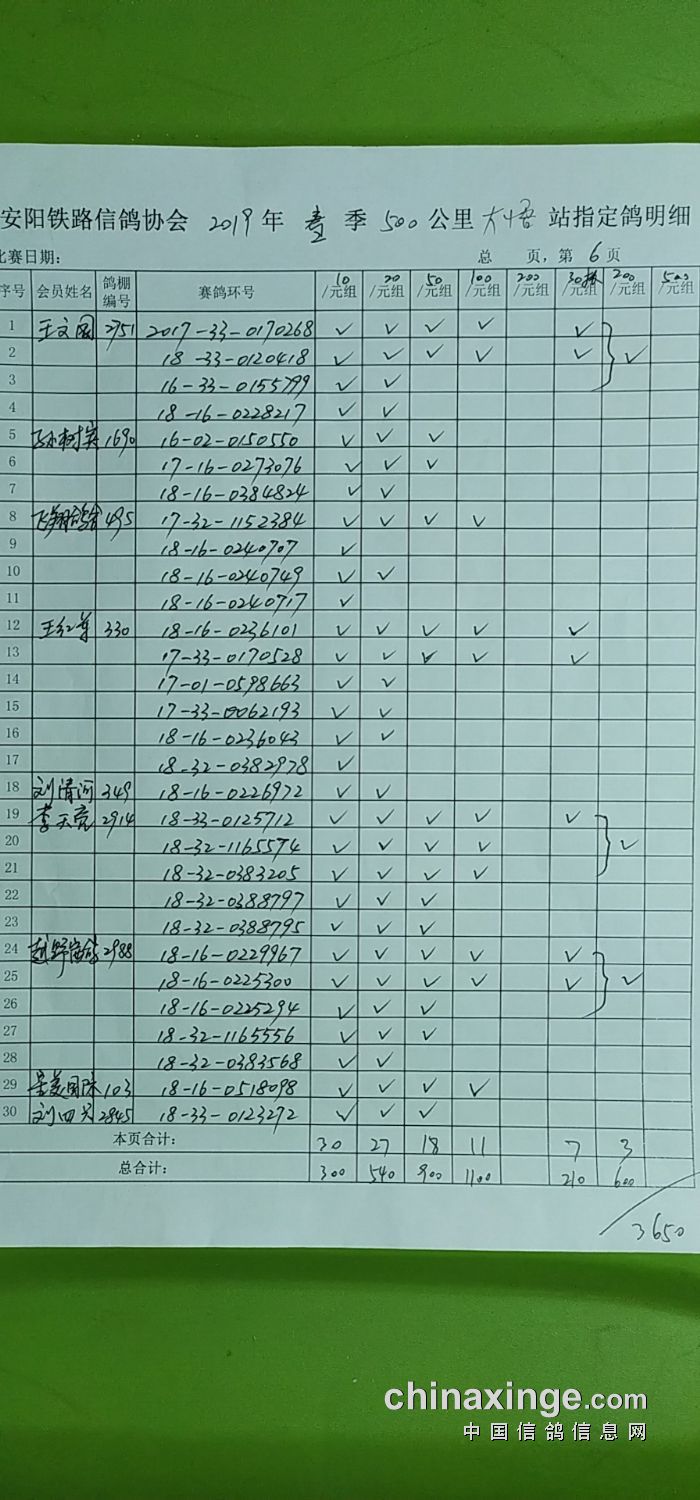 安阳铁路信鸽协会 2019 年 春 季 500 公里 大悟 站指定鸽明细
比赛日期: 总 页, 第 6 页
序号 会员姓名 鸽棚编号 赛鸽环号 10/元组 20/元组 50/元组 100/元组 200/元组 30/元组 200/元组 500/元组
1 王文国 2751 2017-33-0170268 ✓ ✓ ✓ ✓ ✓
2 18-33-0120418 ✓ ✓ ✓ ✓ ✓ ✓
3 16-33-0155799 ✓ ✓
4 18-16-0228217 ✓ ✓
5 1690 16-02-0150550 ✓ ✓ ✓
6 17-16-0273076 ✓ ✓ ✓
7 18-16-0384824 ✓ ✓
8 飞翔鸽舍 495 17-32-1152384 ✓ ✓ ✓ ✓
9 18-16-0240707 ✓
10 18-16-0240749 ✓ ✓
11 18-16-0240717 ✓
12 王红军 330 18-16-0236101 ✓ ✓ ✓ ✓ ✓
13 17-33-0170528 ✓ ✓ ✓ ✓ ✓
14 17-01-0598663 ✓ ✓
15 17-33-0062193 ✓ ✓
16 18-16-0236043 ✓ ✓
17 18-32-0382978 ✓
18 刘清河 349 18-16-0226972 ✓ ✓
19 李天亮 2914 18-33-0125712 ✓ ✓ ✓ ✓ ✓
20 18-32-1165574 ✓ ✓ ✓ ✓ ✓
21 18-32-0383205 ✓ ✓ ✓ ✓
22 18-32-0388797 ✓ ✓ ✓
23 18-32-0388795 ✓ ✓ ✓
24 2988 18-16-0229967 ✓ ✓ ✓ ✓ ✓
25 18-16-0225300 ✓ ✓ ✓ ✓ ✓ ✓
26 18-16-0225294 ✓ ✓ ✓
27 18-32-1165556 ✓ ✓ ✓
28 18-32-0383568 ✓ ✓
29 103 18-16-0518098 ✓ ✓ ✓ ✓
30 2845 18-33-0123272 ✓ ✓ ✓
本页合计: 30 27 18 11 7 3
总合计: 300 540 900 1100 210 600
3650
chinaxinge.com
中国信鸽信息网